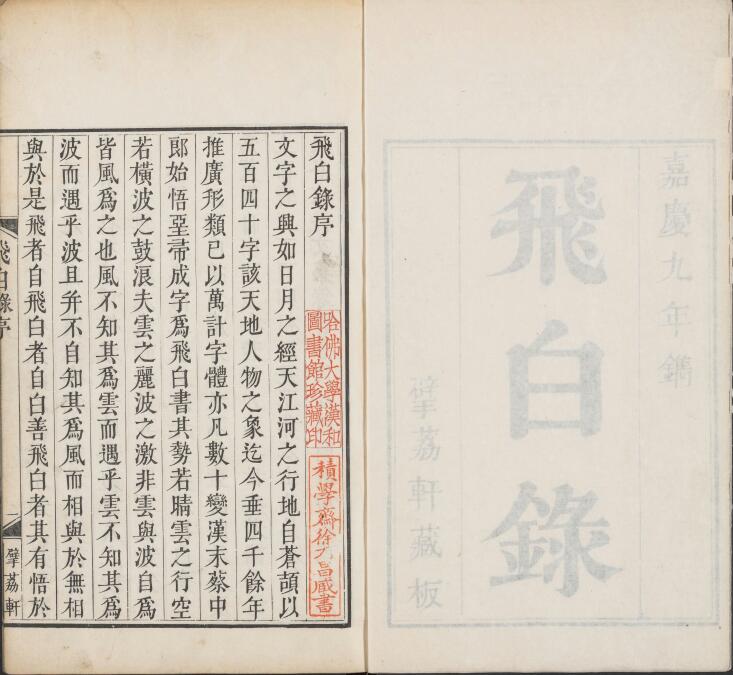 嘉慶九年鐫
飛白錄
擘荔軒藏板
飛白錄序
哈佛大學漢和
圖書館珍藏印
積學齋徐乃昌藏書
文字之興如日月之經天江河之行地自蒼頡以
五百四十字該天地人物之象迄今垂四千餘年
推廣形類已以萬計字體亦凡數十變漢末蔡中
郎始悟堊帚成字爲飛白書其勢若晴雲之行空
若橫波之鼓浪夫雲之麗波之激非雲與波自爲
皆風爲之也風不知其爲雲而遇乎雲不知其爲
波而遇乎波且并不自知其爲風而相與於無相
與於是飛者自飛白者自白善飛白者其有悟於
飛白錄序
一
擘荔軒